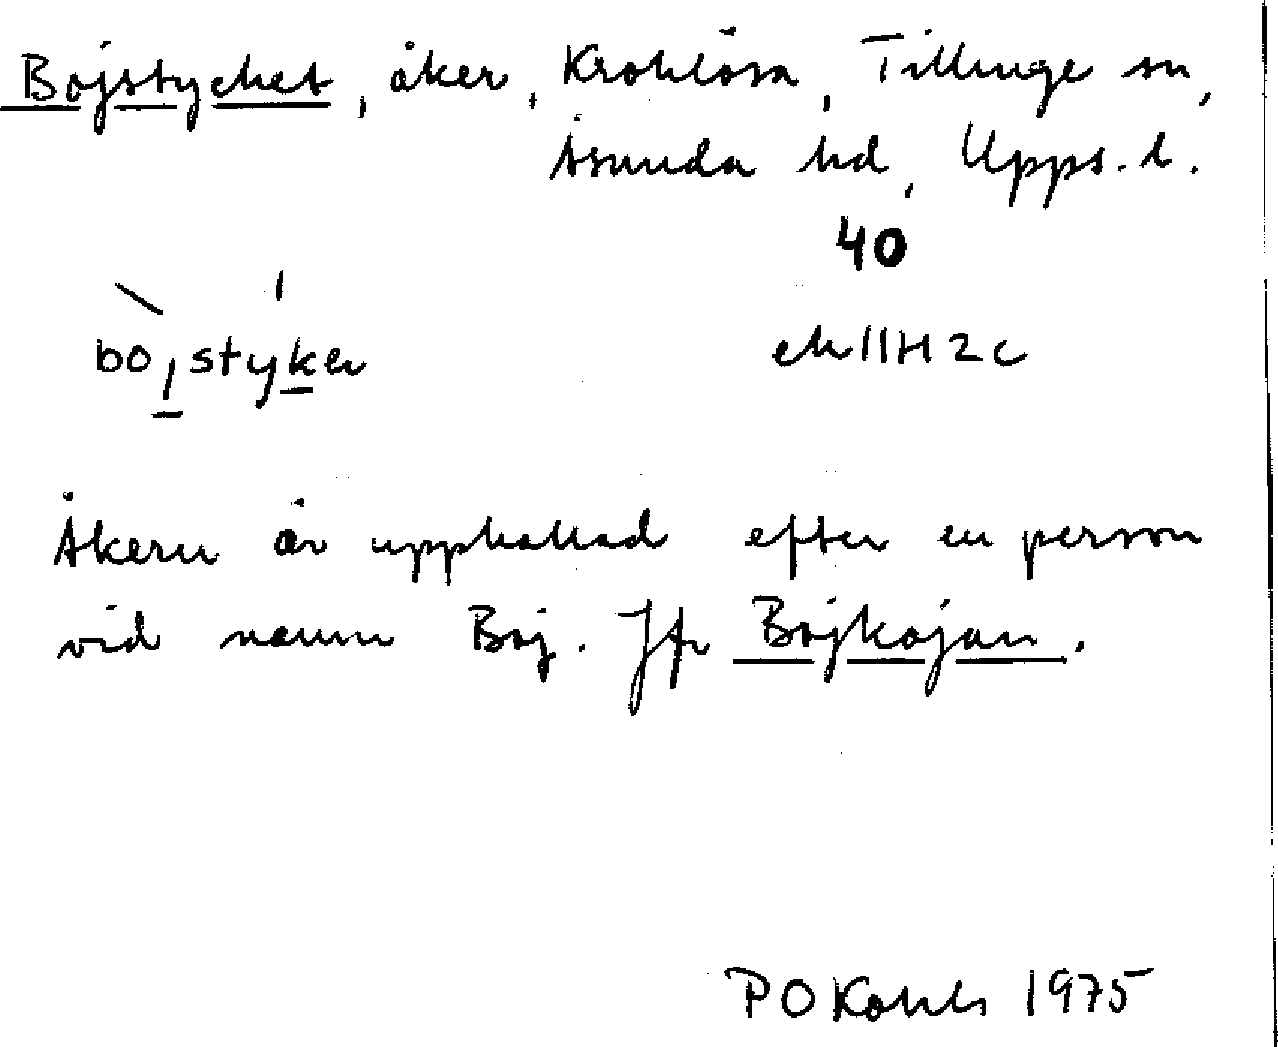 Bojstycket, åker, Kroklösa, Tillinge sn,
Åsunda hd, Upps. l.
40
bojstyker
ek 11H2c
Åkern är uppkallad efter en person
vid namn Boj. Jfr Bojkojan.
P O 1975